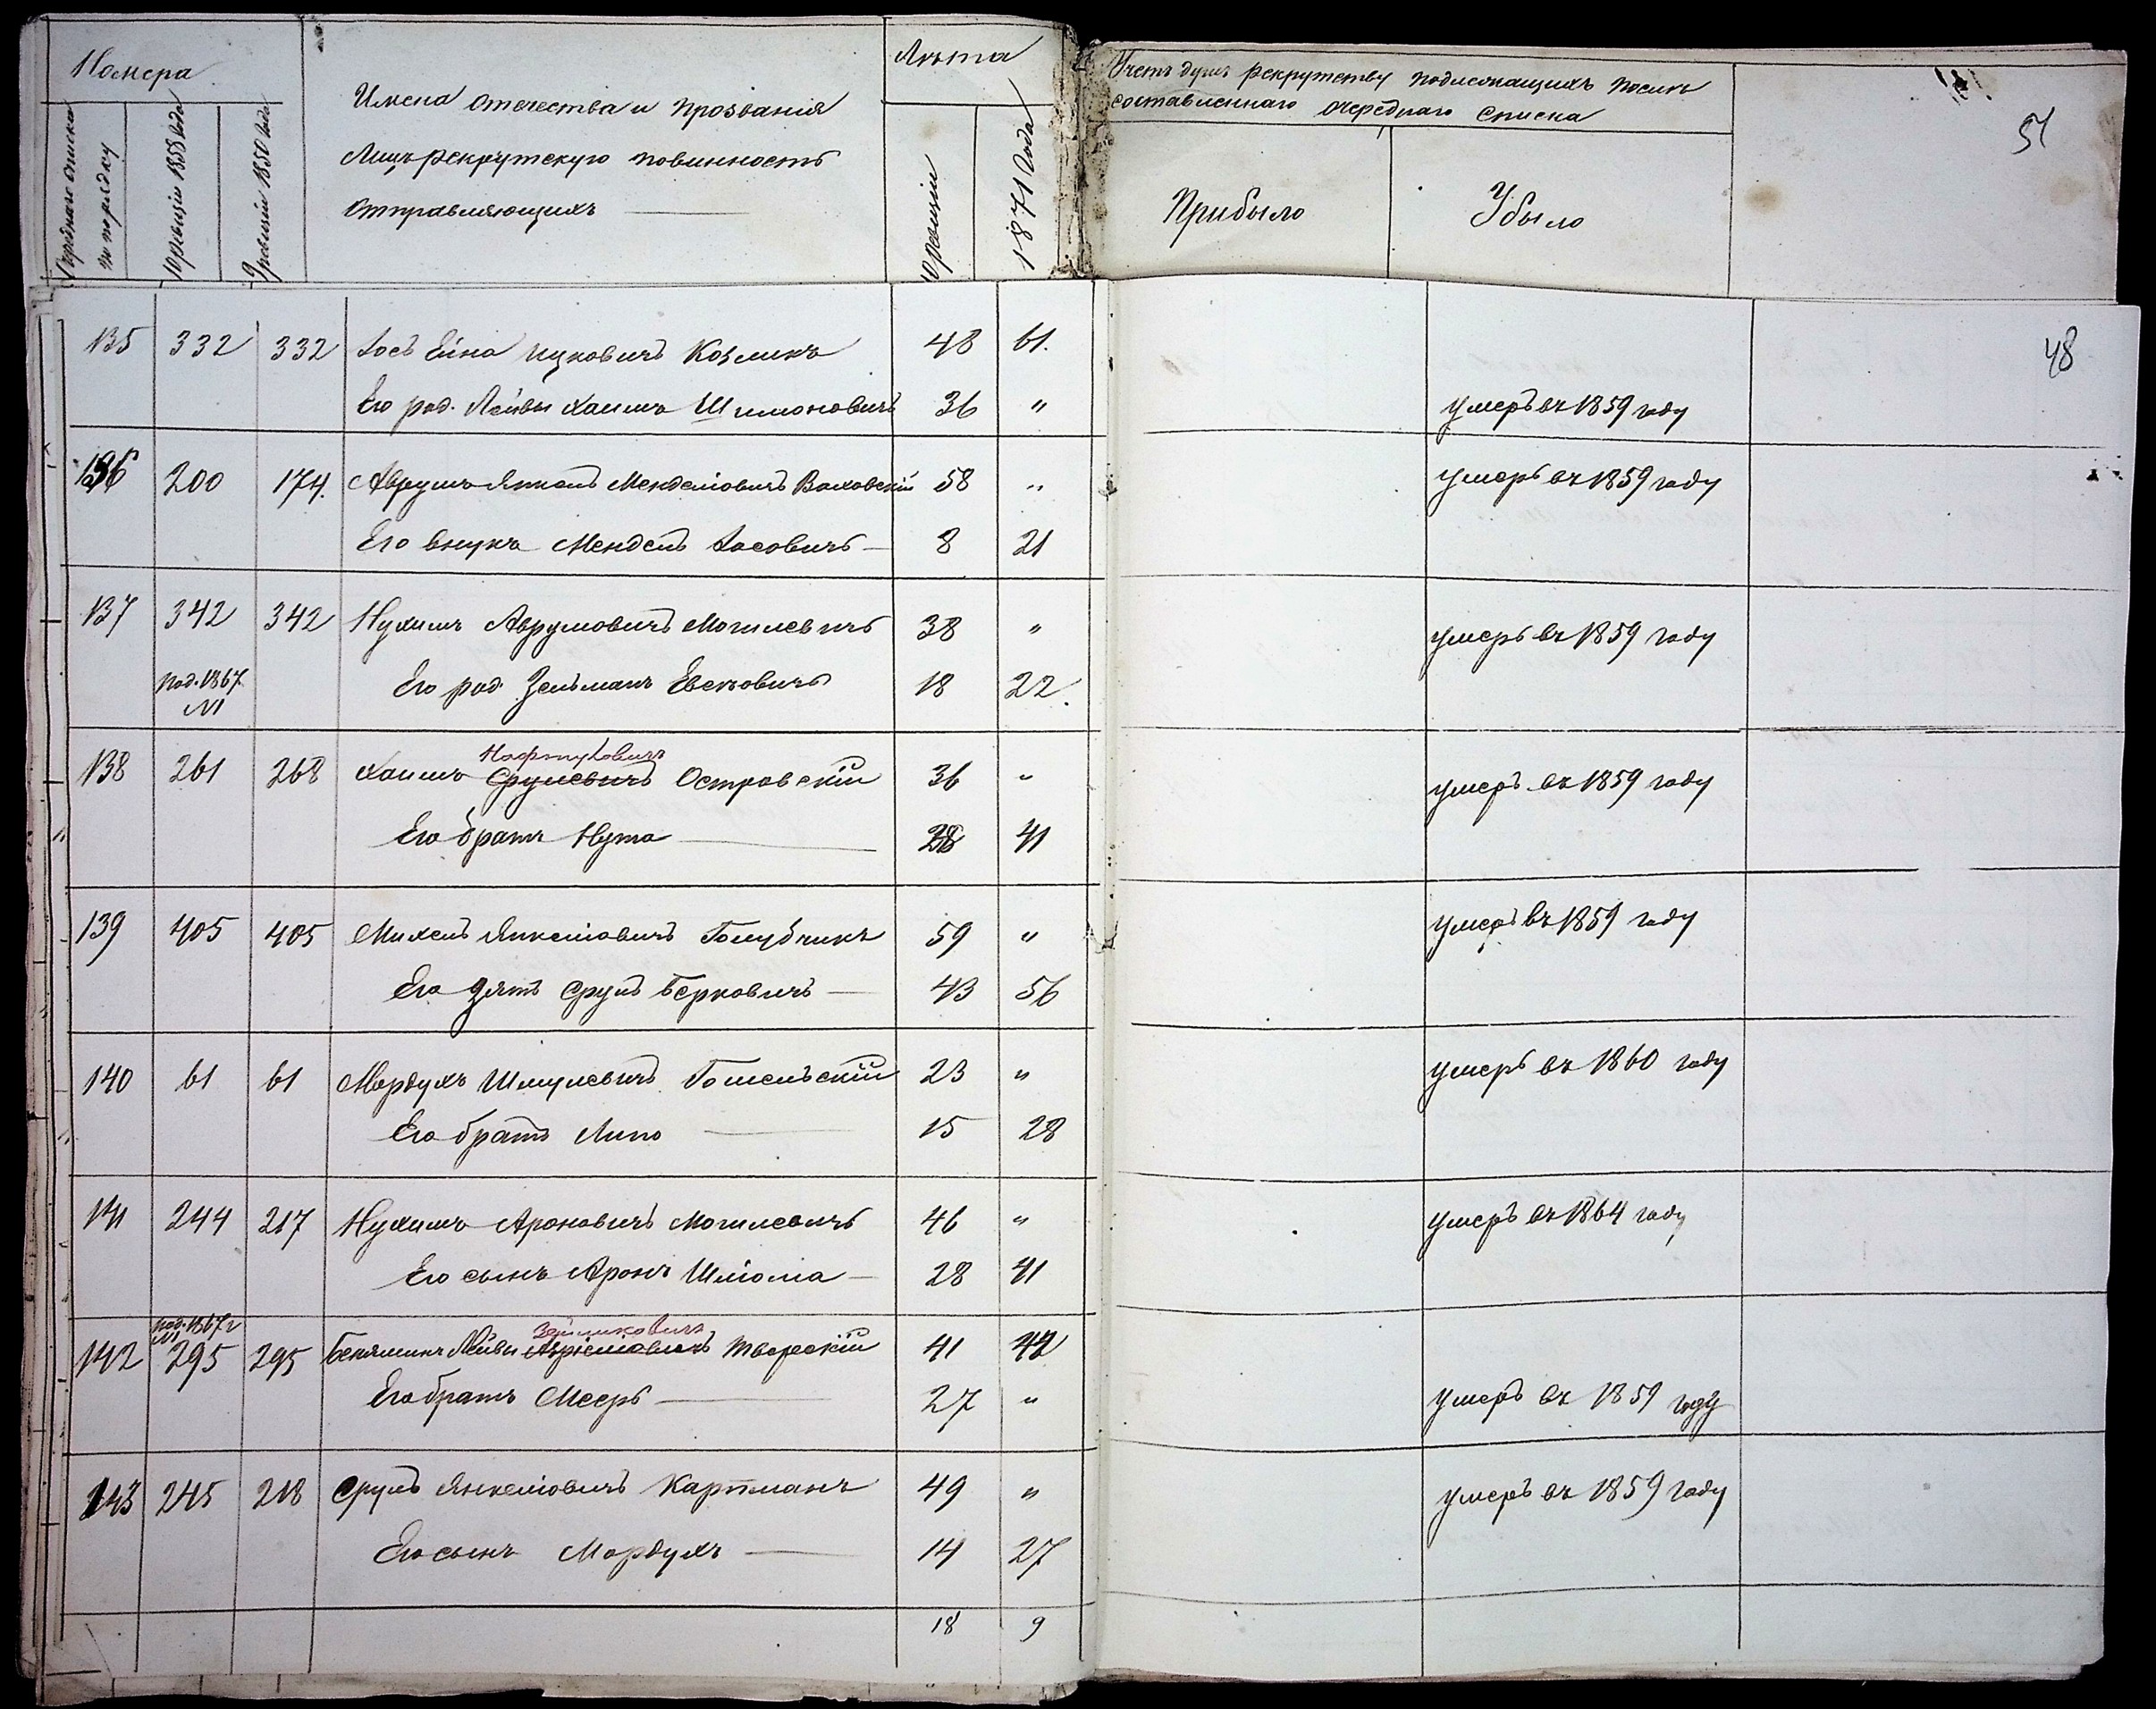 Номера
Очереднаго списка по порядку
10 ревизіи 1858 года
9 ревизіи 1850 года
Имена отечества и прозванія
Лицъ рекрутскую повинность
отправляющихъ
Лѣта
10 ревизіи
1871 года
Учетъ душъ рекрутству подлежащихъ послѣ
составленнаго очереднаго списка
Прибыло
Убыло
51
48
135 332 332 Іось Ейна Ицковичъ Козликъ 48 61.
Его род. Лейвы Хаимъ Шимоновичъ 36 " умеръ въ 1859 году
136 200 174. Аврумъ Янкель Менделіовичъ Валовскій 58 " умеръ въ 1859 году
Его внукъ Мендель Іосовичъ 8 21
137 342 342 Нухимъ Аврумовичъ Могилевичъ 38 " умеръ въ 1859 году
под. 1867 Его род. Зельманъ Евековичъ 18 22.
№1
Нафтуловичъ
138 261 268 Хаимъ Срулевичъ Островскій 36 " умеръ въ 1859 году
Его братъ Нута 28 41
139 405 405 Михель Янкеліовичъ Голубчикъ 59 " умеръ въ 1859 году
Его зять Сруль Берковичъ 43 56
140 61 61 Мордухъ Шмулевичъ Гомельскій 23 " умеръ въ 1860 году
Его братъ Липо 15 28
141 244 217 Нухимъ Ароновичъ Могилевичъ 46 " умеръ въ 1864 году
Его сынъ Аронъ Шліома 28 41
под. 1867 г Зеликовичъ
№1
142 295 295 Беняминъ Лейвы Авріеліовичъ Тверскій 41 42
Его братъ Мееръ 27 " умеръ въ 1859 году
143 245 218 Сруль Янкеліовичъ Картманъ 49 " умеръ въ 1859 году
Его сынъ Мордухъ 14 27
18 9